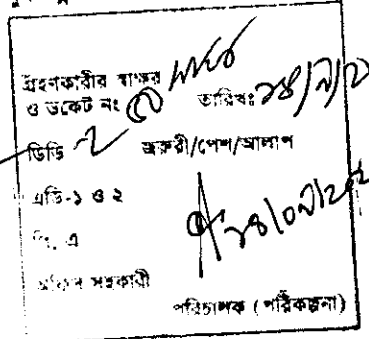 গ্রহণকারীর স্বাক্ষর
ও ডকেট নং তারিখঃ
ডিডি জরুরী/পেশ/আলাপ
এডি-১ ও ২
পি, এ
অফিস সহকারী
পরিচালক (পরিকল্পনা)